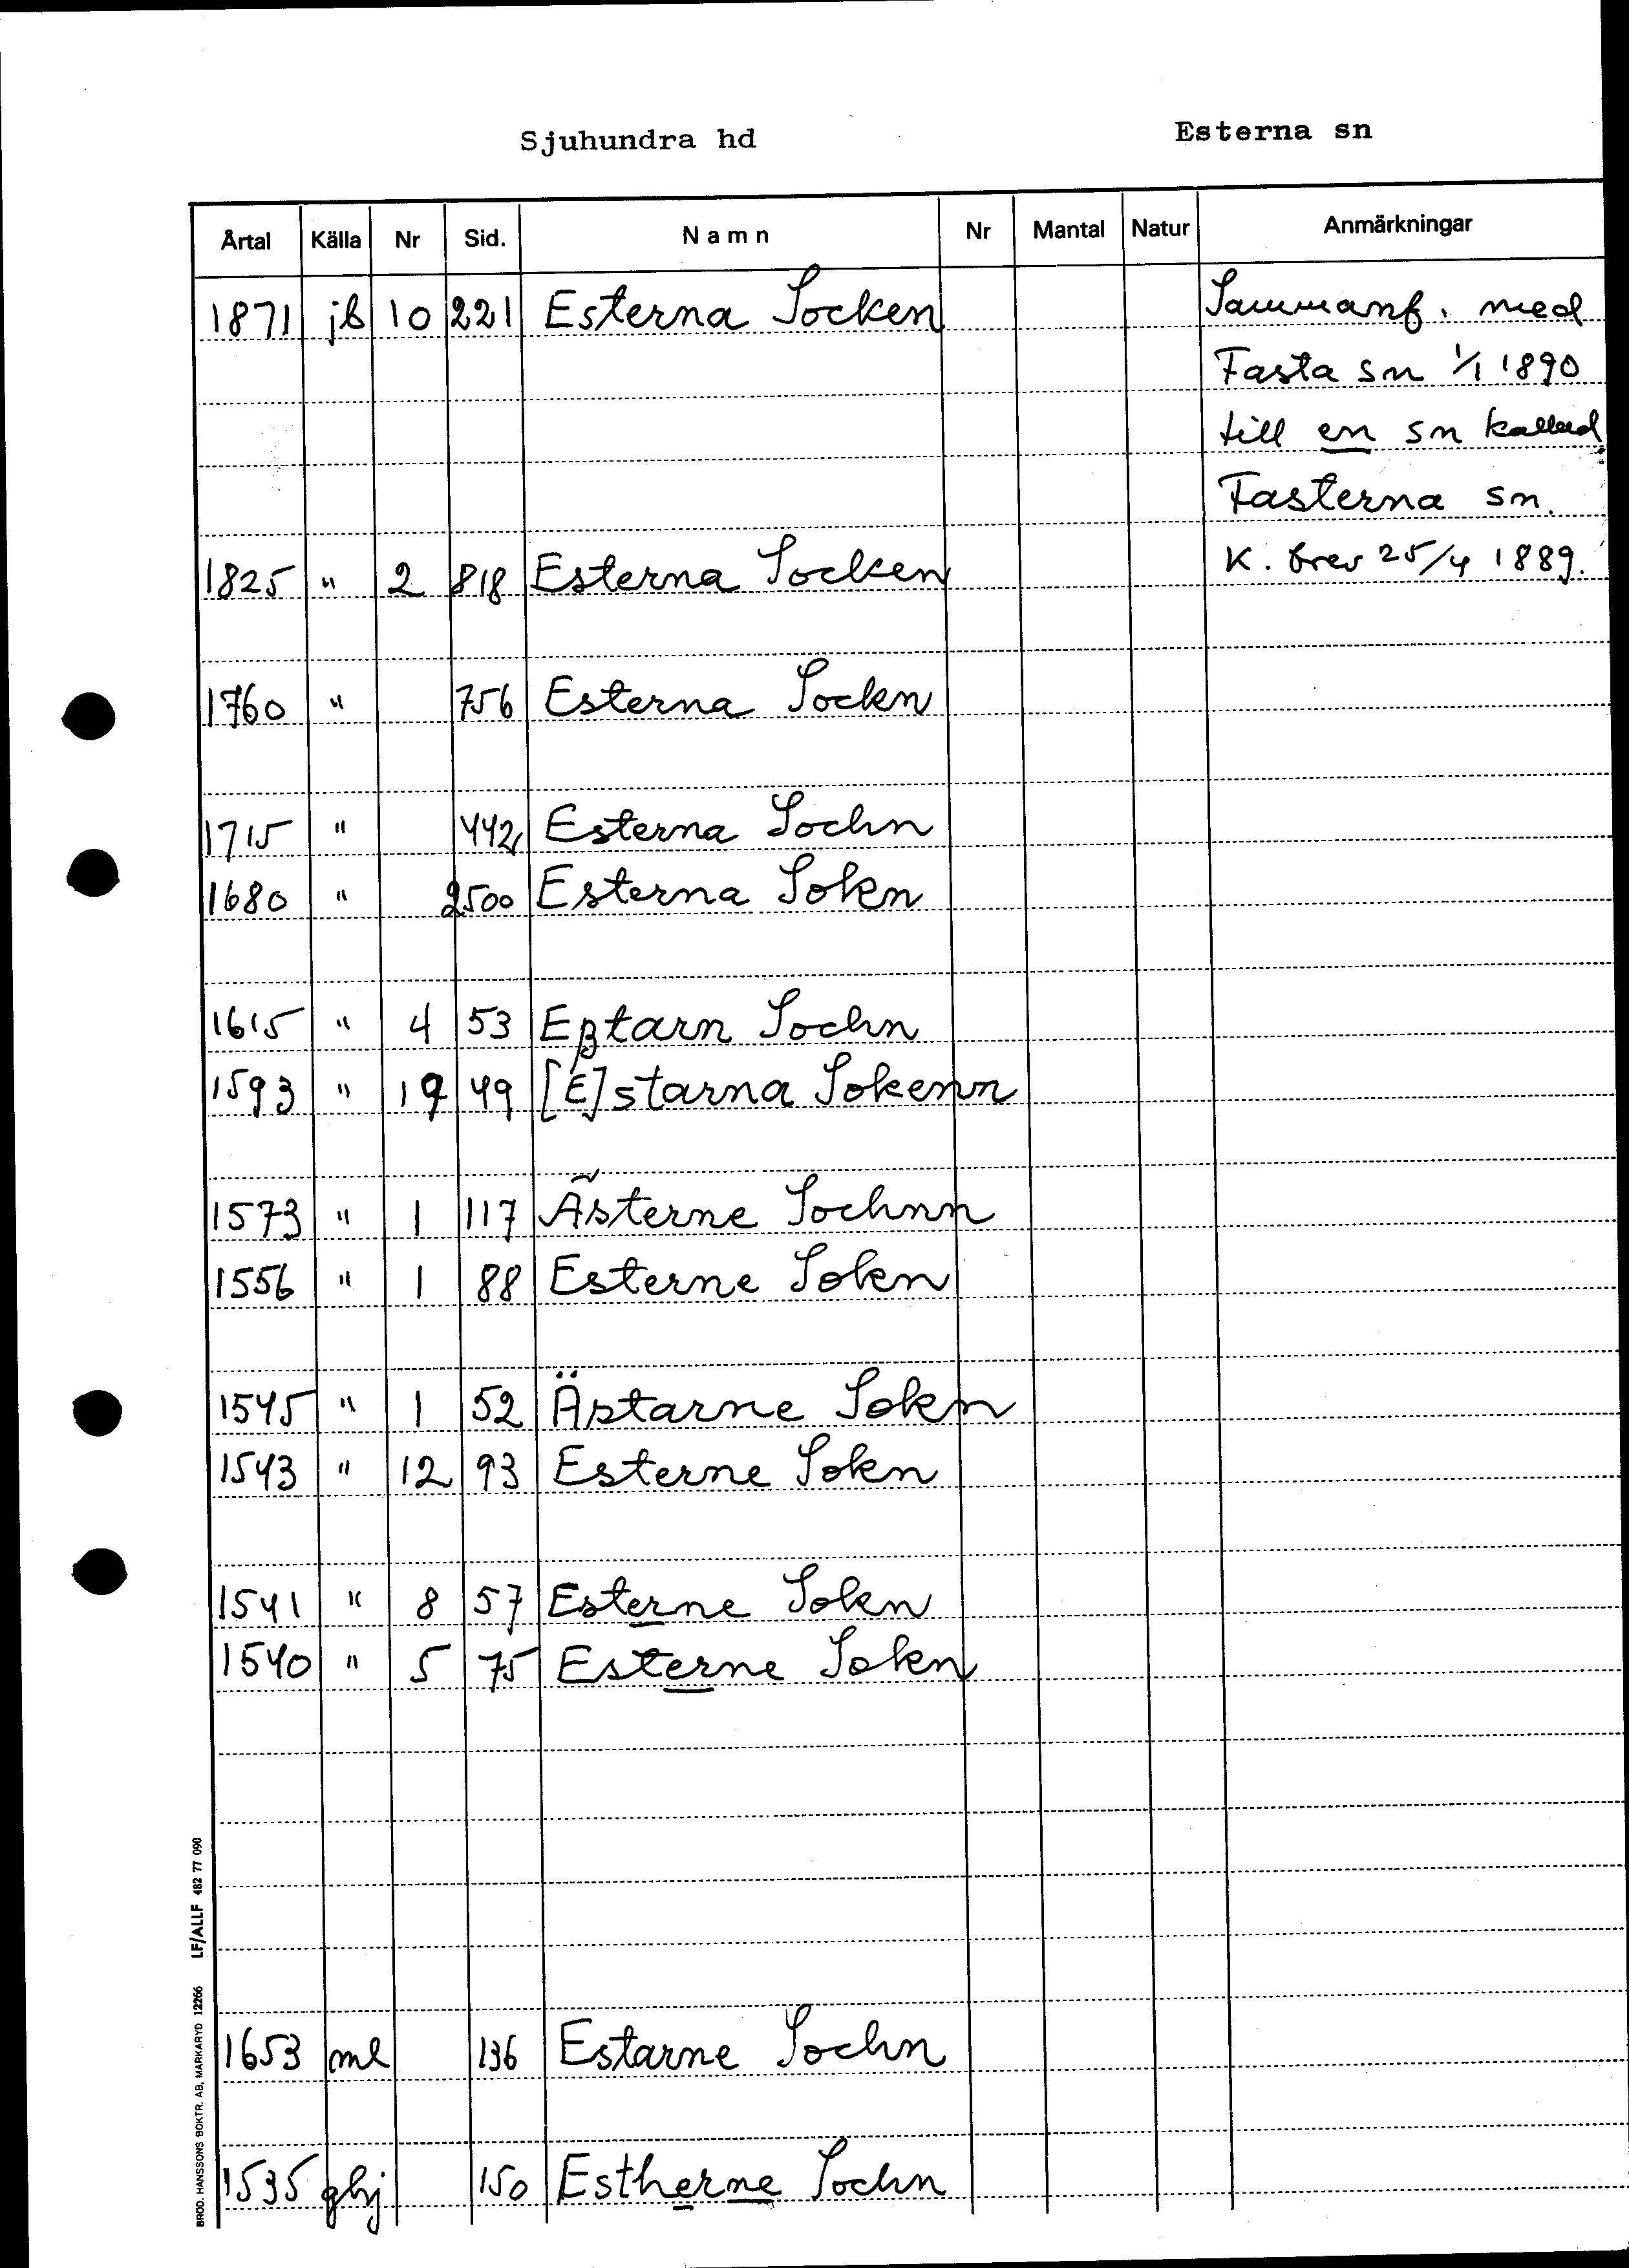 Sjuhundra hd Esterna sn
Årtal Källa Nr Sid. Namn Nr Mantal Natur Anmärkningar
1871 jb 10 221 Esterna Socken Sammanf. med
Fasta sn 1/1 1890
till en sn kallad
Fasterna sn.
1825 " 2 818 Esterna Socken K. brev 25/4 1889.
1760 " 756 Esterna Sockn
1715 " 442 Esterna Sochn
1680 " 2500 Esterna Sokn
1615 " 4 53 Eßtarn Sochn
1593 " 19 49 [E]starna Sokenn
1573 " 1 117 Ãsterne Sochnn
1556 " 1 88 Esterne Sokn
1545 " 1 52 Ästarne Sokn
1543 " 12 93 Esterne Sokn
1541 " 8 57 Esterne Sokn
1540 " 5 75 Esterne Sokn
1653 ml 136 Estarne Sochn
1535 ghj 150 Estherne Sochn
BRÖD. HANSSONS BOKTR. AB, MARKARYD 12266 LF/ALLF 482 77 090